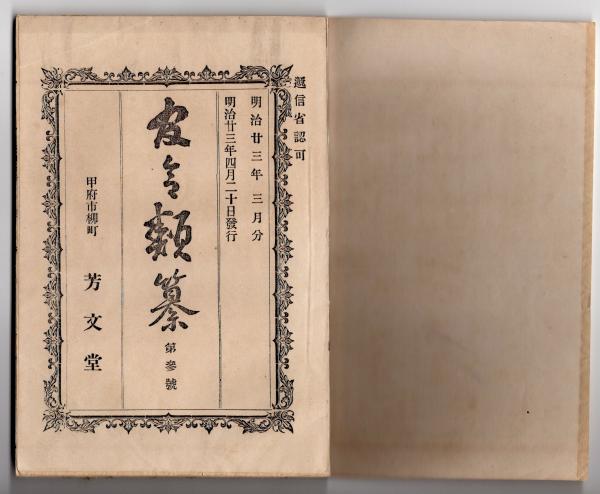 遞信省認可
明治廿三年三月分
明治廿三年四月二十日發行
官令類纂
第參號
甲府市柳町
芳文堂